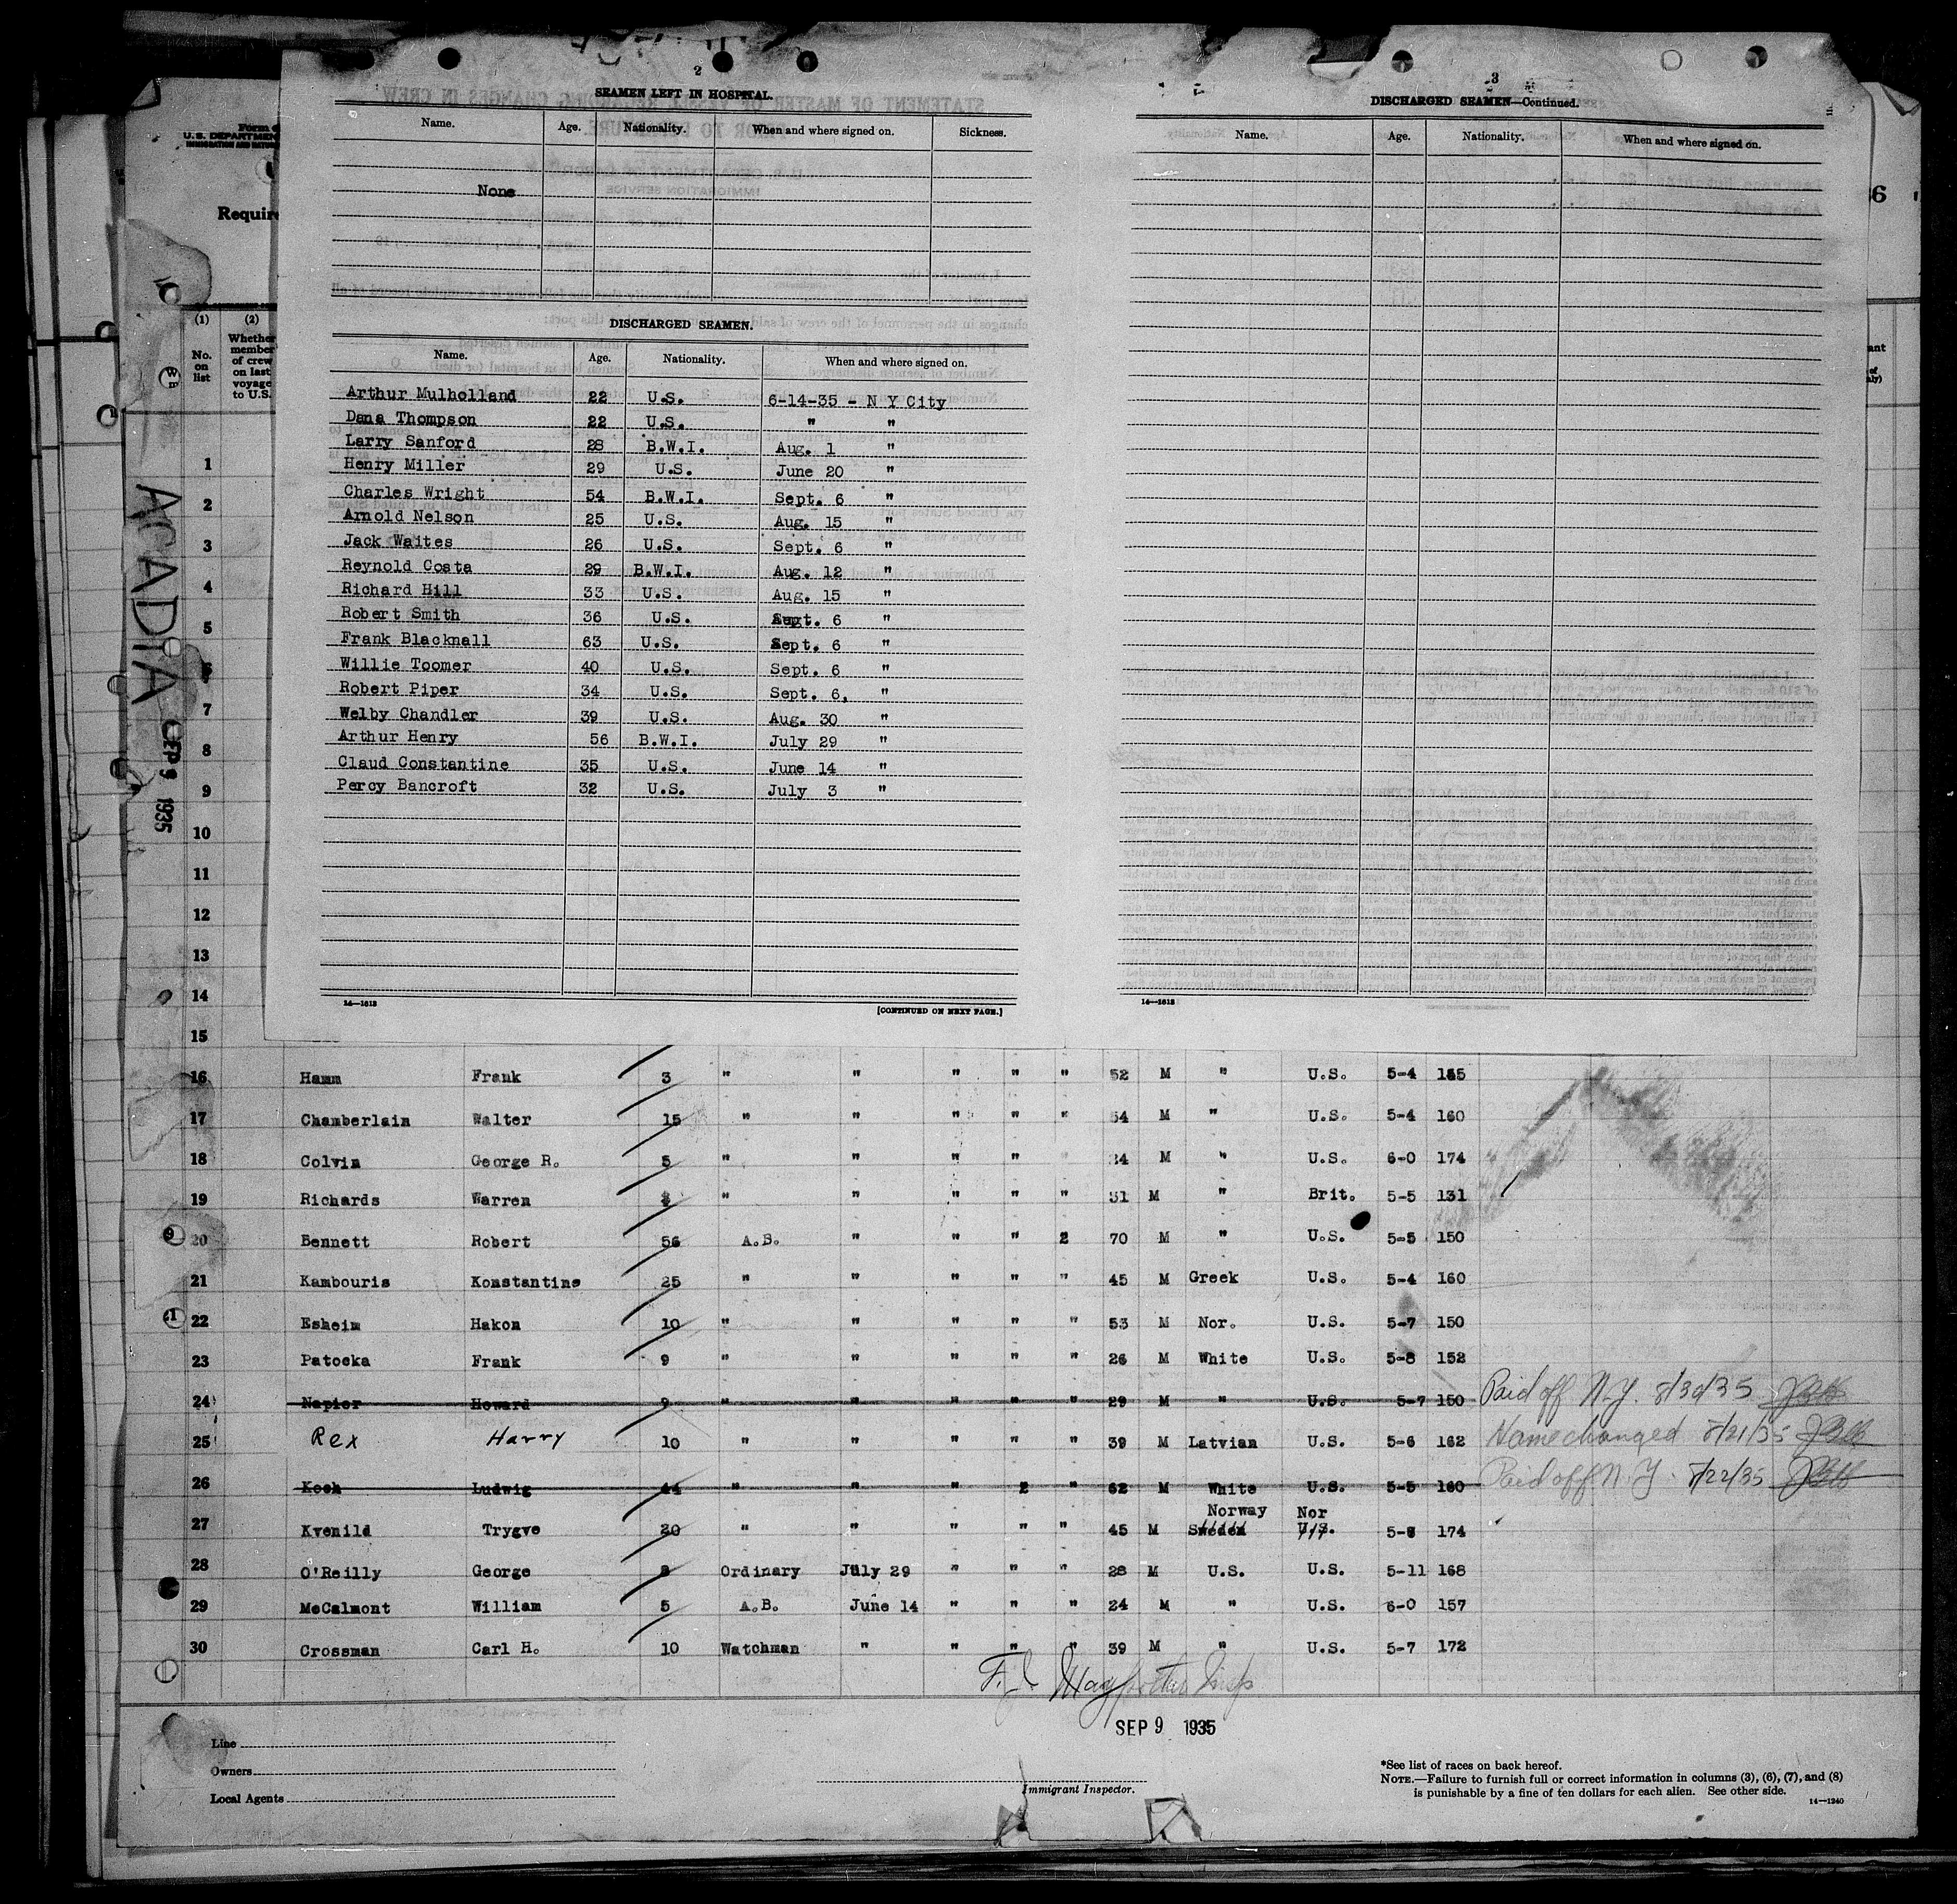 2
SEAMEN LEFT IN HOSPITAL.
Name. Age. Nationality. When and where signed on. Sickness.
None
DISCHARGED SEAMEN.
Name. Age. Nationality. When and where signed on.
Arthur Mulholland 22 U.S. 6-14-35 - N Y City
Dana Thompson 22 U.S. " "
Larry Sanford 28 B.W.I. Aug. 1 "
Henry Miller 29 U.S. June 20 "
Charles Wright 54 B.W.I. Sept. 6 "
Arnold Nelson 25 U.S. Aug. 15 "
Jack Waites 26 U.S. Sept. 6 "
Reynold Costa 29 B.W.I. Aug. 12 "
Richard Hill 33 U.S. Aug. 15 "
Robert Smith 36 U.S. Sept. 6 "
Frank Blacknall 63 U.S. Sept. 6 "
Willie Toomer 40 U.S. Sept. 6 "
Robert Piper 34 U.S. Sept. 6, "
Welby Chandler 39 U.S. Aug. 30 "
Arthur Henry 56 B.W.I. July 29 "
Claud Constantine 35 U.S. June 14 "
Percy Bancroft 32 U.S. July 3 "
14—1613
[CONTINUED ON NEXT PAGE.]
3
DISCHARGED SEAMEN—Continued.
Name. Age. Nationality. When and where signed on.
14—1613
Form
U.S. DEPARTMEN
Require
6
(1) (2)
No. on list
Whether member of crew on last voyage to U.S.
ACADIA
SEP 9 1935
1
2
3
4
5
6
7
8
9
10
11
12
13
14
15
16 Hamm Frank 3 " " " " " 52 M " U.S. 5-4 165
17 Chamberlain Walter 15 " " " " " 54 M " U.S. 5-4 160
18 Colvin George R. 5 " " " " " 24 M " U.S. 6-0 174
19 Richards Warren " " " " " 31 M " Brit. 5-5 131
20 Bennett Robert 56 A.B. " " " 2 70 M " U.S. 5-5 150
21 Kambouris Konstantine 25 " " " " " 45 M Greek U.S. 5-4 160
22 Esheim Hakon 10 " " " " " 53 M Nor. U.S. 5-7 150
23 Patocka Frank 9 " " " " " 26 M White U.S. 5-8 152
24 Napier Howard 9 " " " " " 29 M " U.S. 5-7 150 Paid off N.Y. 8/30/35
25 Rex Harry 10 " " " " " 39 M Latvian U.S. 5-6 162 Name changed 8/21/35
26 Koch Ludwig 44 " " " 2 " 62 M White U.S. 5-5 160 Paid off N.Y. 8/22/35
Norway Nor
27 Kvenild Trygve 20 " " " " " 45 M Sweden U.S. 5-8 174
28 O'Reilly George Ordinary July 29 " " " 28 M U.S. U.S. 5-11 168
29 McCalmont William 5 A.B. June 14 " " " 24 M " U.S. 6-0 157
30 Crossman Carl H. 10 Watchman " " " " 39 M " U.S. 5-7 172
F. J. Insp
SEP 9 1935
Line
Owners
Local Agents
Immigrant Inspector.
*See list of races on back hereof.
NOTE.—Failure to furnish full or correct information in columns (3), (6), (7), and (8)
is punishable by a fine of ten dollars for each alien. See other side.
14—1240